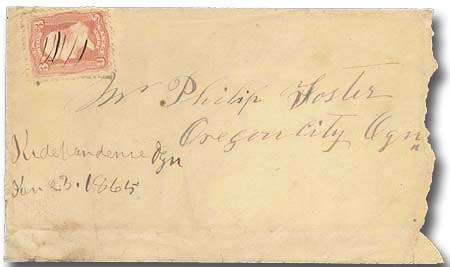 Mr Philip Foster
Oregon City Ogn
Independence Ogn
Jan 23. 1865